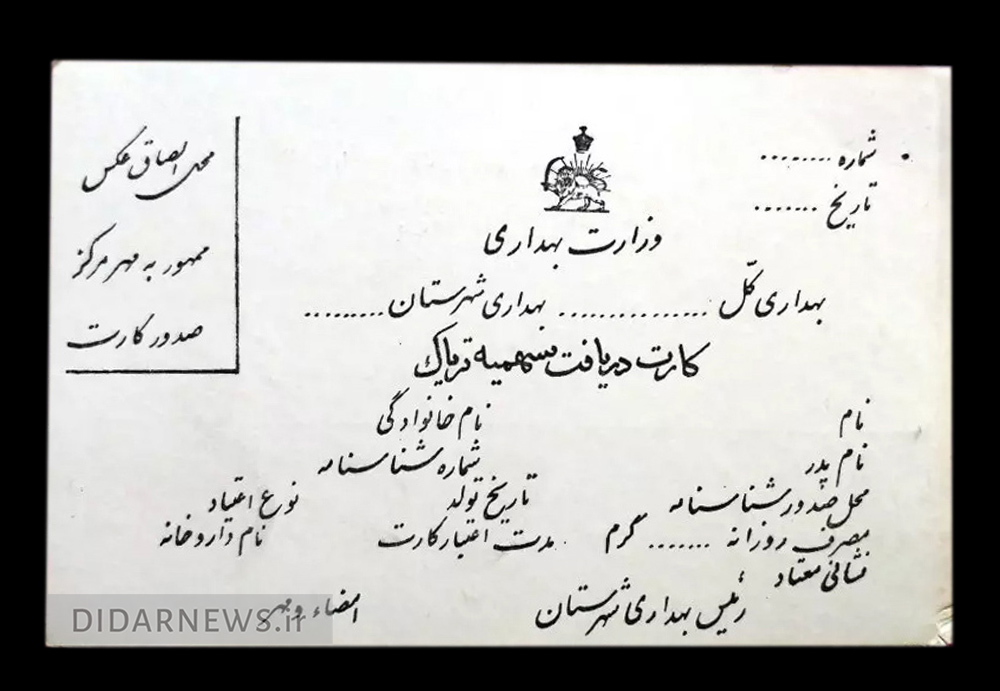 شماره ........
تاریخ .......
محل الصاق عکس
ممهور به مهر مرکز
صدور کارت
وزارت بهداری
بهداری کلّ ............... بهداری شهرستان .........
کارت دریافت سهمیه تریاک
نام نام خانوادگی
نام پدر شماره شناسنامه
محل صدور شناسنامه تاریخ تولد نوع اعتیاد
مصرف روزانه ....... گرم مدت اعتبار کارت نام داروخانه
نشانی معتاد
رئیس بهداری شهرستان امضاء و مهر
DIDARNEWS.ir